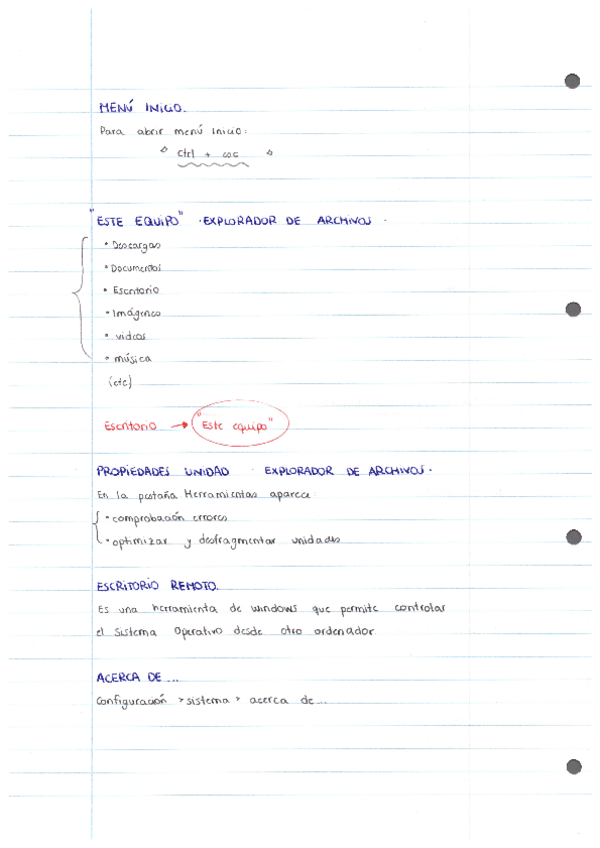 MENÚ INICIO.
Para abrir menú inicio:
Ctrl + esc
"ESTE EQUIPO" · EXPLORADOR DE ARCHIVOS ·
• Descargas
• Documentos
• Escritorio
• Imágenes
• videos
• música
(etc)
Escritorio → "Este equipo"
PROPIEDADES UNIDAD · EXPLORADOR DE ARCHIVOS ·
En la pestaña Herramientas aparece
• comprobación errores
• optimizar y desfragmentar unidades
ESCRITORIO REMOTO.
Es una herramienta de windows que permite controlar
el Sistema Operativo desde otro ordenador
ACERCA DE ...
Configuración > sistema > acerca de...